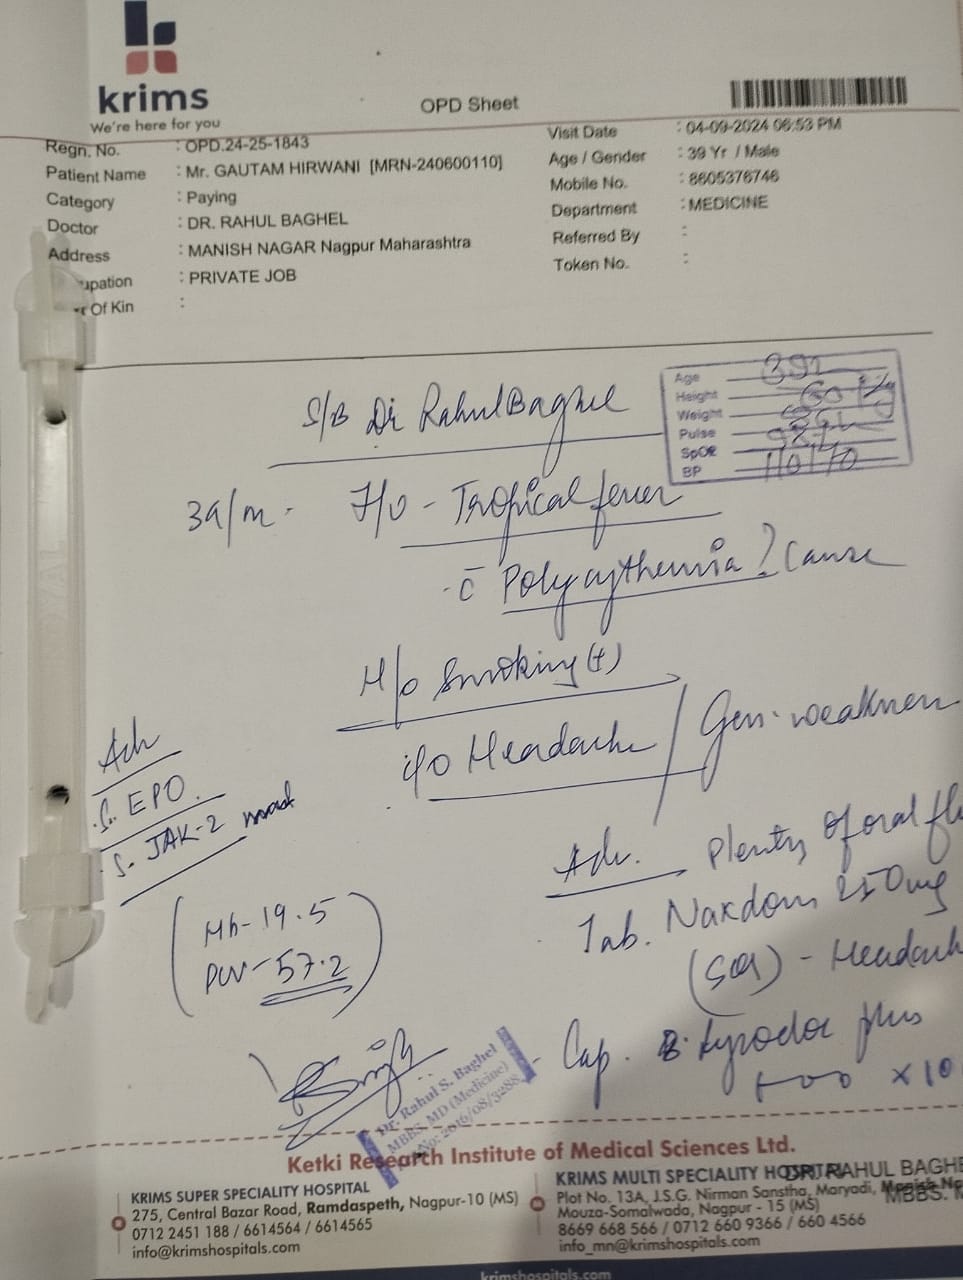 krims
We're here for you
OPD Sheet
Regn. No. : OPD.24-25-1843
Patient Name : Mr. GAUTAM HIRWANI [MRN-240600110]
Category : Paying
Doctor : DR. RAHUL BAGHEL
Address : MANISH NAGAR Nagpur Maharashtra
upation : PRIVATE JOB
Of Kin :
Visit Date : 04-09-2024 06:53 PM
Age / Gender : 39 Yr / Male
Mobile No. : 8605376746
Department : MEDICINE
Referred By :
Token No. :
S/B Dr Rahul Baghel
Age 39
Height
Weight 60 kg
Pulse
SpO2
BP 110/70
39/m. F/U - Tropical fever
c̄ Polycythemia ? Cause
H/o Smoking (+)
c/o Headache / Gen. weakness
Adv
S. EPO.
S. JAK-2
(Hb - 19.5
PCV - 57.2)
Adv. Plenty of oral fl
Tab. Naxdom 250mg
(SOS) - Headach
Cap. plus
x 10
Dr. Rahul S. Baghel
MBBS, MD (Medicine)
No: 2016/08/3288
Ketki Research Institute of Medical Sciences Ltd.
KRIMS SUPER SPECIALITY HOSPITAL
275, Central Bazar Road, Ramdaspeth, Nagpur-10 (MS)
0712 2451 188 / 6614564 / 6614565
info@krimshospitals.com
KRIMS MULTI SPECIALITY HOSPITAL
DR. RAHUL BAGHE
Plot No. 13A, J.S.G. Nirman Sanstha, Maryadi, Manish Na
MBBS. M
Mouza-Somalwada, Nagpur - 15 (MS)
8669 668 566 / 0712 660 9366 / 660 4566
info_mn@krimshospitals.com
krimshospitals.com